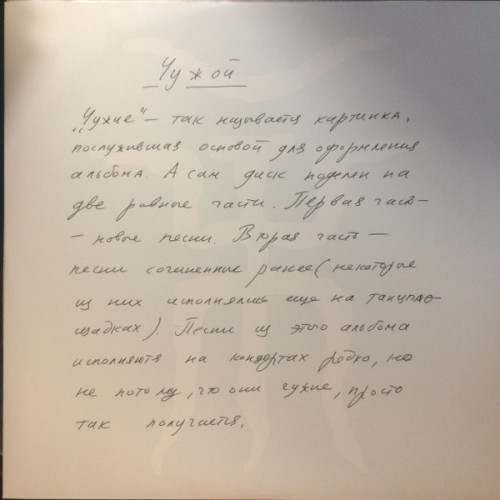 Чужой
„Чужие“ – так нызывается картинка,
послужившая основой для оформления
альбома. А сам диск поделен на
две равные части. Первая часть –
– новые песни. Вторая часть –
песни сочиненные ранее (некоторые
из них исполнялись еще на танцпло-
щадках). Песни из этого альбома
исполняются на концертах редко, но
не потому, что они чужие, просто
так получается.